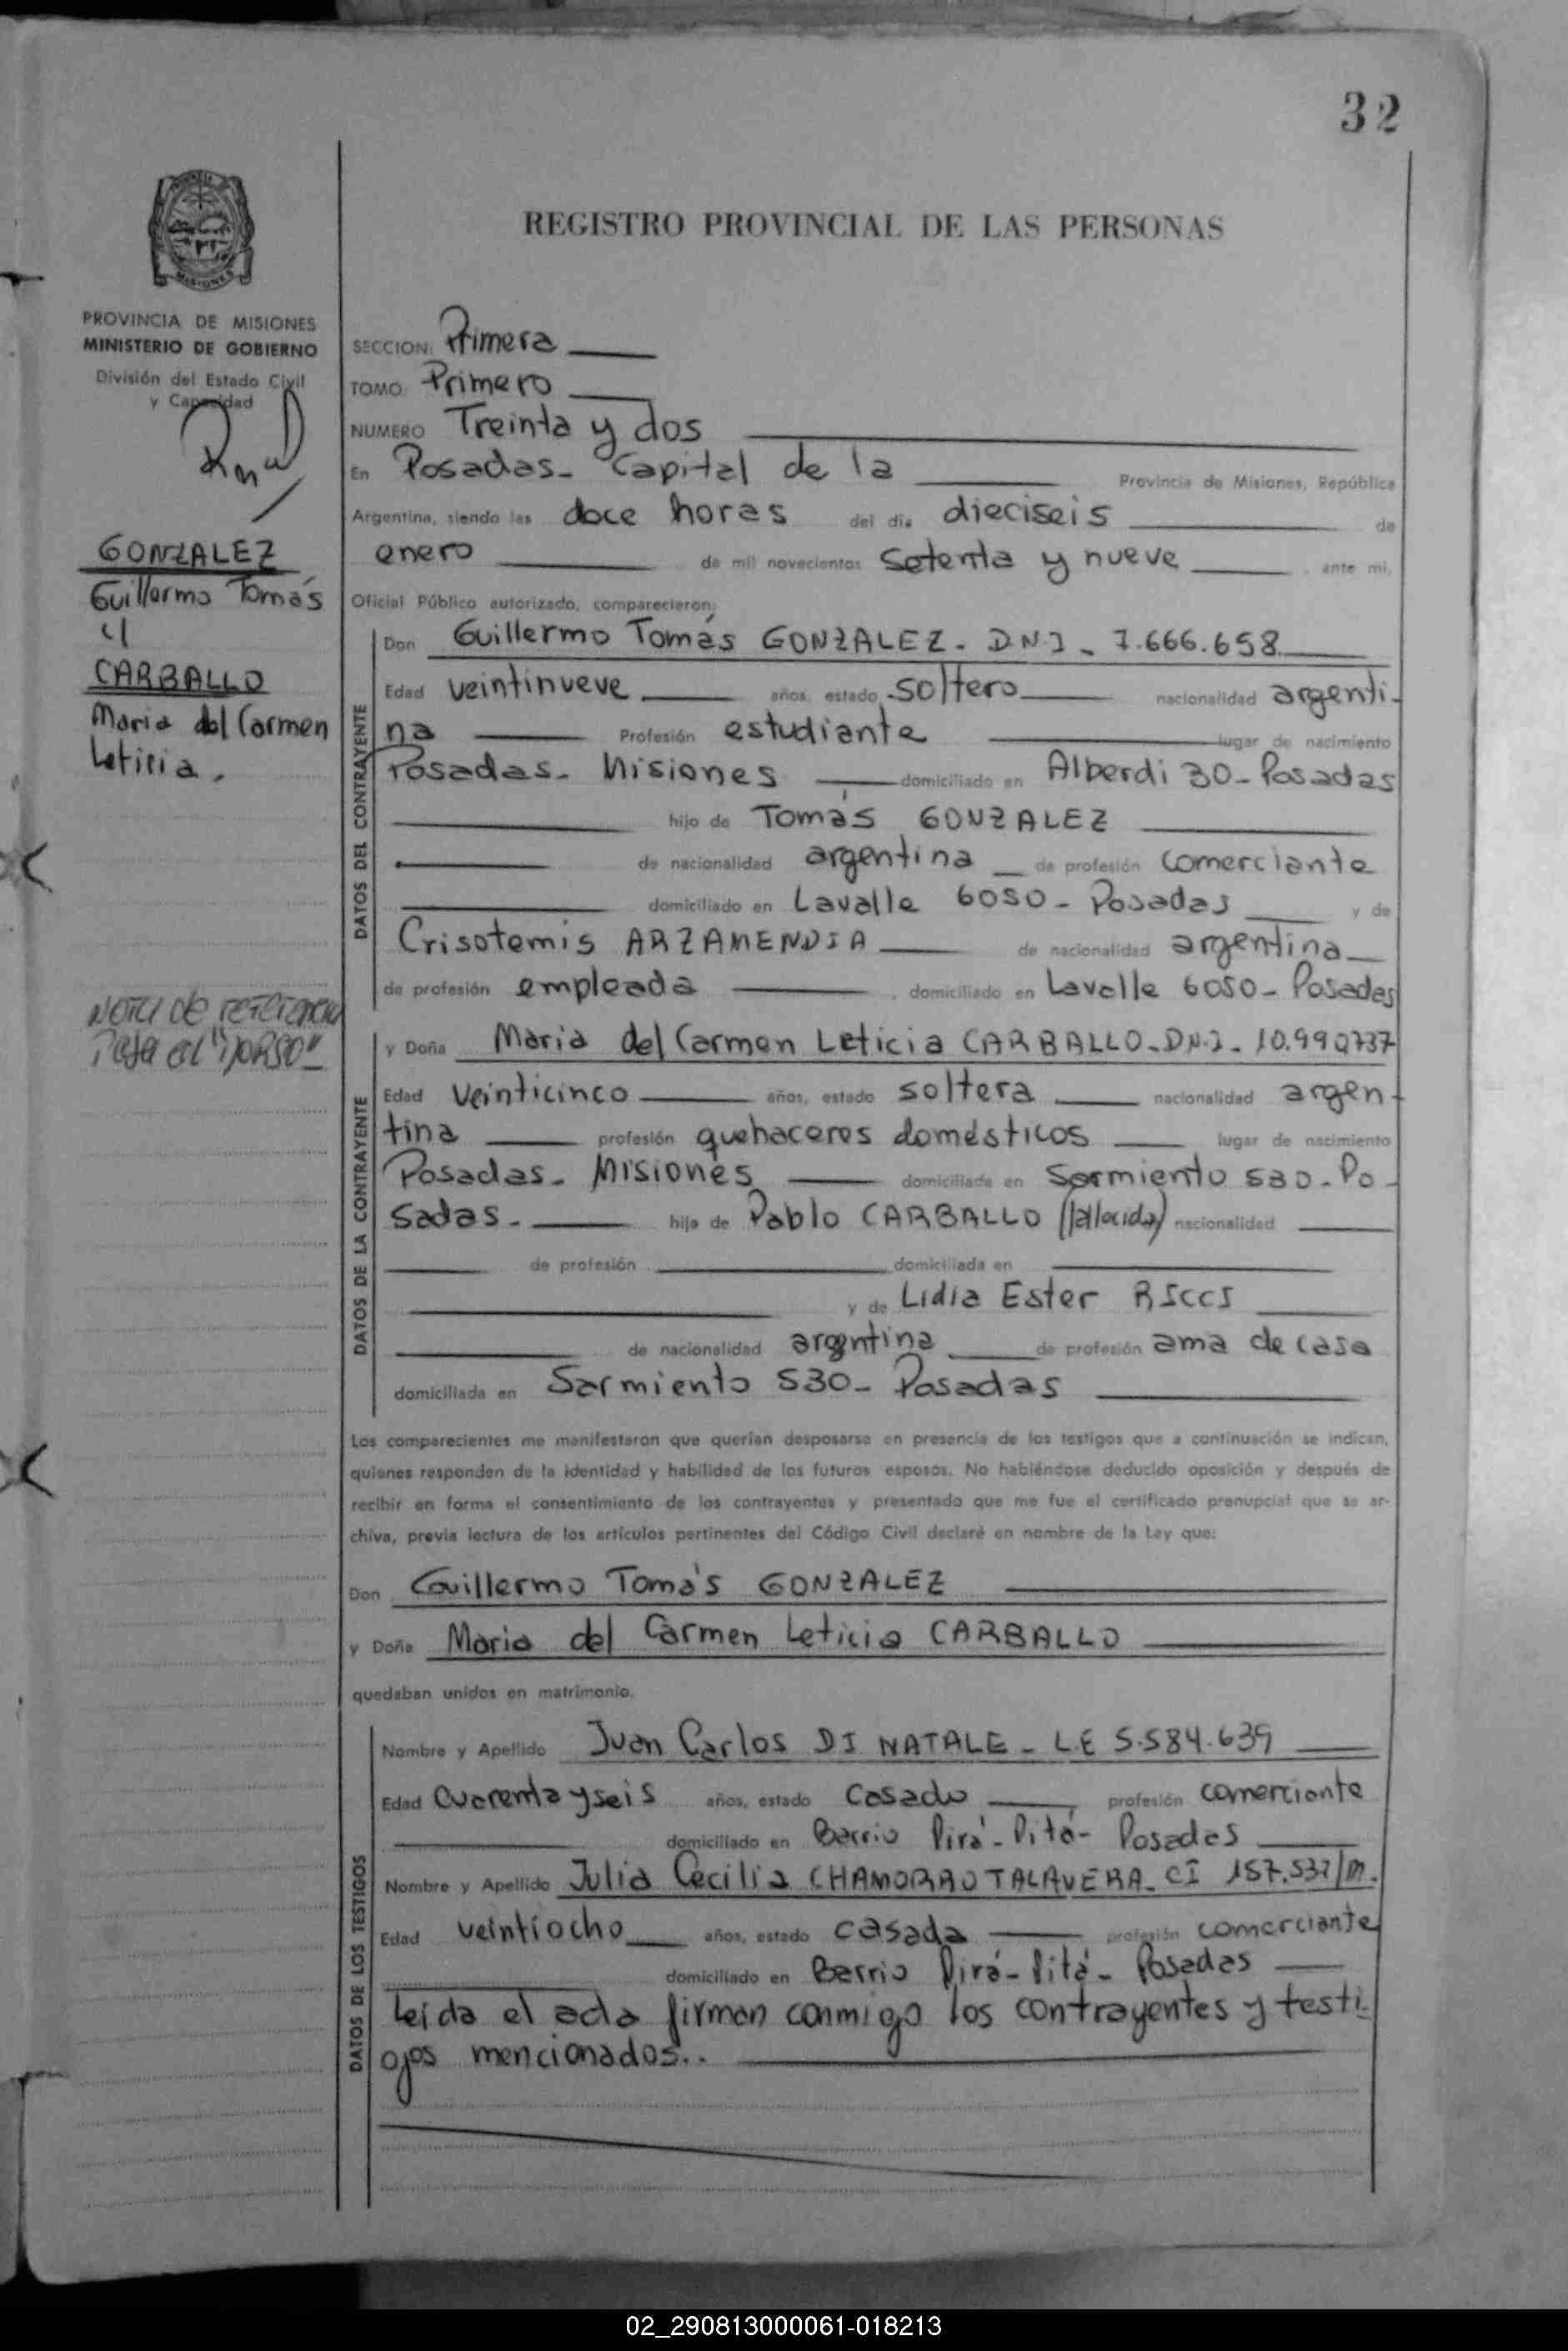 32
MISIONES
PROVINCIA DE MISIONES
MINISTERIO DE GOBIERNO
División del Estado Civil
y Capacidad
GONZALEZ
Guillermo Tomás
y
CARBALLO
Maria del Carmen
Leticia.
NOTA DE REFERENCIA
Pasa al "DORSO"
REGISTRO PROVINCIAL DE LAS PERSONAS
SECCION: Primera
TOMO: Primero
NUMERO Treinta y dos
En Posadas- Capital de la Provincia de Misiones, República
Argentina, siendo las doce horas del día dieciseis de
enero de mil novecientos setenta y nueve ante mí,
Oficial Público autorizado, comparecieron:
DATOS DEL CONTRAYENTE
Don Guillermo Tomás GONZALEZ - D.N.I - 7.666.658
Edad veintinueve años, estado soltero nacionalidad argenti-
na Profesión estudiante lugar de nacimiento
Posadas- Misiones domiciliado en Alberdi 30- Posadas
hijo de Tomás GONZALEZ
de nacionalidad argentina de profesión comerciante
domiciliado en Lavalle 6050- Posadas y de
Crisotemis ARZAMENDIA de nacionalidad argentina
de profesión empleada , domiciliado en Lavalle 6050- Posadas
DATOS DE LA CONTRAYENTE
y Doña Maria del Carmen Leticia CARBALLO-D.N.I- 10.990737
Edad veinticinco años, estado soltera nacionalidad argen-
tina profesión quehaceres domésticos lugar de nacimiento
Posadas- Misiones domiciliada en Sarmiento 530- Po-
sadas- hija de Pablo CARBALLO (fallecido) nacionalidad
de profesión domiciliada en
y de Lidia Ester RICCI
de nacionalidad argentina de profesión ama de casa
domiciliada en Sarmiento 530- Posadas
Los comparecientes me manifestaron que querían desposarse en presencia de los testigos que a continuación se indican,
quienes responden de la identidad y habilidad de los futuros esposos. No habiéndose deducido oposición y después de
recibir en forma el consentimiento de los contrayentes y presentado que me fue el certificado prenupcial que se ar-
chiva, previa lectura de los artículos pertinentes del Código Civil declaré en nombre de la Ley que:
Don Guillermo Tomás GONZALEZ
y Doña Maria del Carmen Leticia CARBALLO
quedaban unidos en matrimonio.
DATOS DE LOS TESTIGOS
Nombre y Apellido Juan Carlos DI NATALE - L.E 5.584.639
Edad cuarenta y seis años, estado casado profesión comerciante
domiciliado en Barrio Pirá-Pitá- Posadas
Nombre y Apellido Julia Cecilia CHAMORRO TALAVERA- CI 157.537/M.
Edad veintiocho años, estado casada profesión comerciante
domiciliado en Barrio Pirá-Pitá- Posadas
Leída el acta firman conmigo los contrayentes y testi-
gos mencionados..
02_290813000061-018213